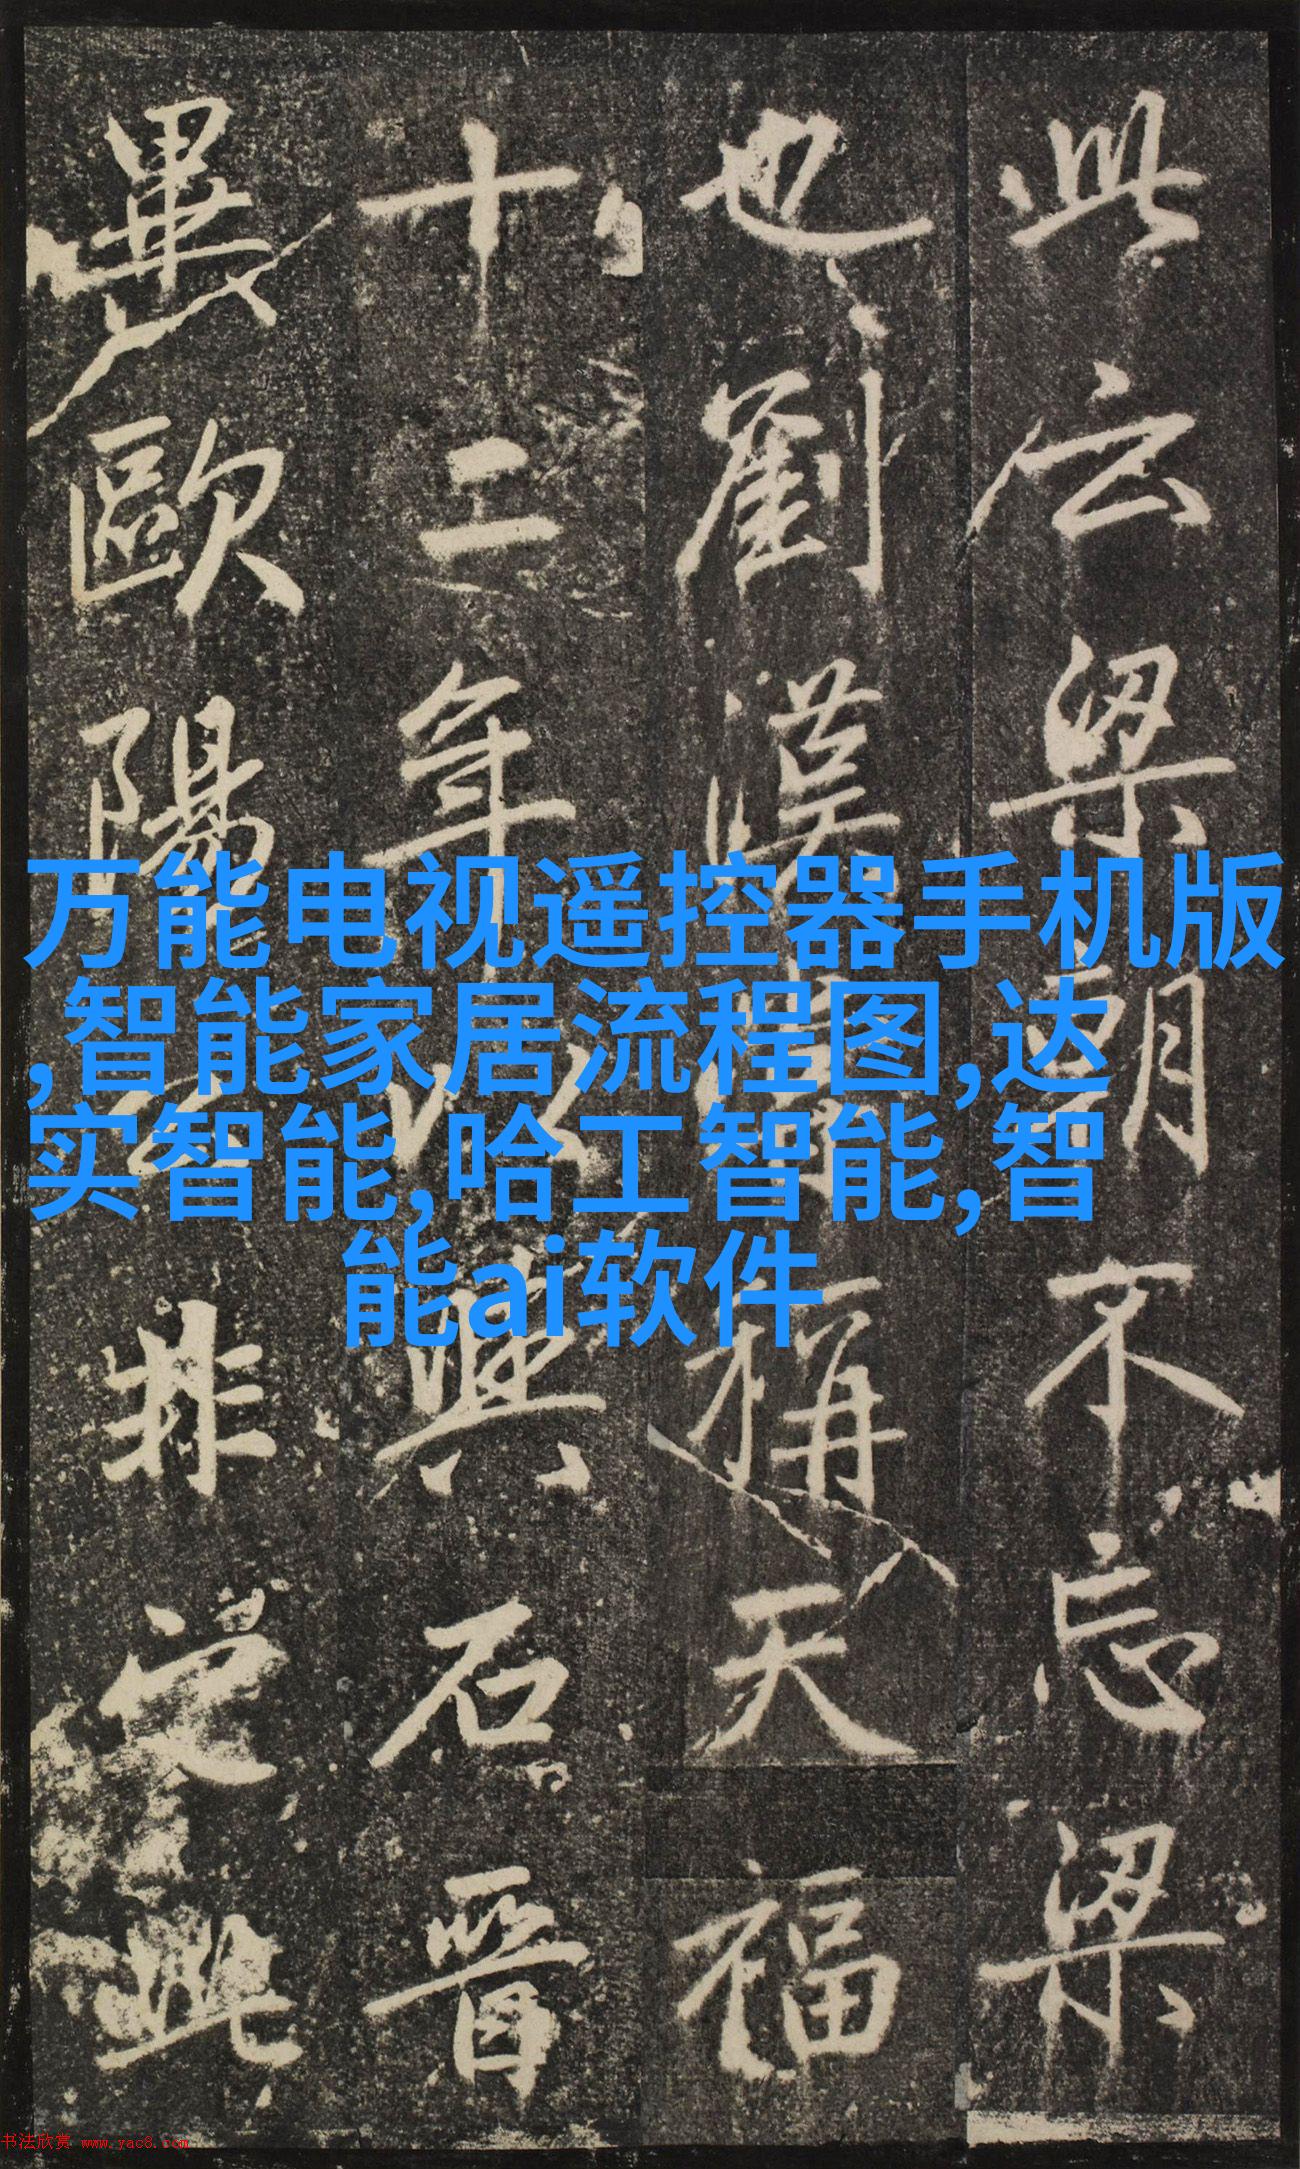 此云梁朝不忘梁
也劉漢稱天福
十二年以與石晉
歐陽公非此
万能电视遥控器手机版
,智能家居流程图,达
实智能,哈工智能,智
能ai软件
书法欣赏 www.yac8.com